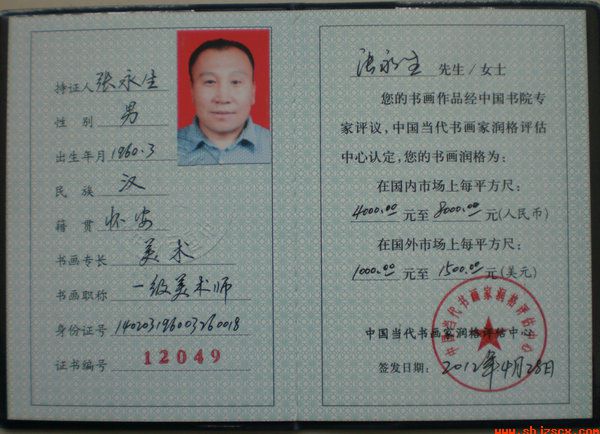 持证人 张永生
性 别 男
出生年月 1960.3
民 族 汉
籍 贯 怀安
书画专长 美术
书画职称 一级美术师
身份证号 140203196003260018
证书编号 12049
张永生 先生/女士
您的书画作品经中国书院专
家评议,中国当代书画家润格评估
中心认定,您的书画润格为:
在国内市场上每平方尺:
4000.00 元至 8000.00 元(人民币)
在国外市场上每平方尺:
1000.00 元至 1500.00 元(美元)
中国当代书画家润格评估中心
签发日期: 2012年4月28日
中国当代书画家润格评估中心
www.shjzscx.com